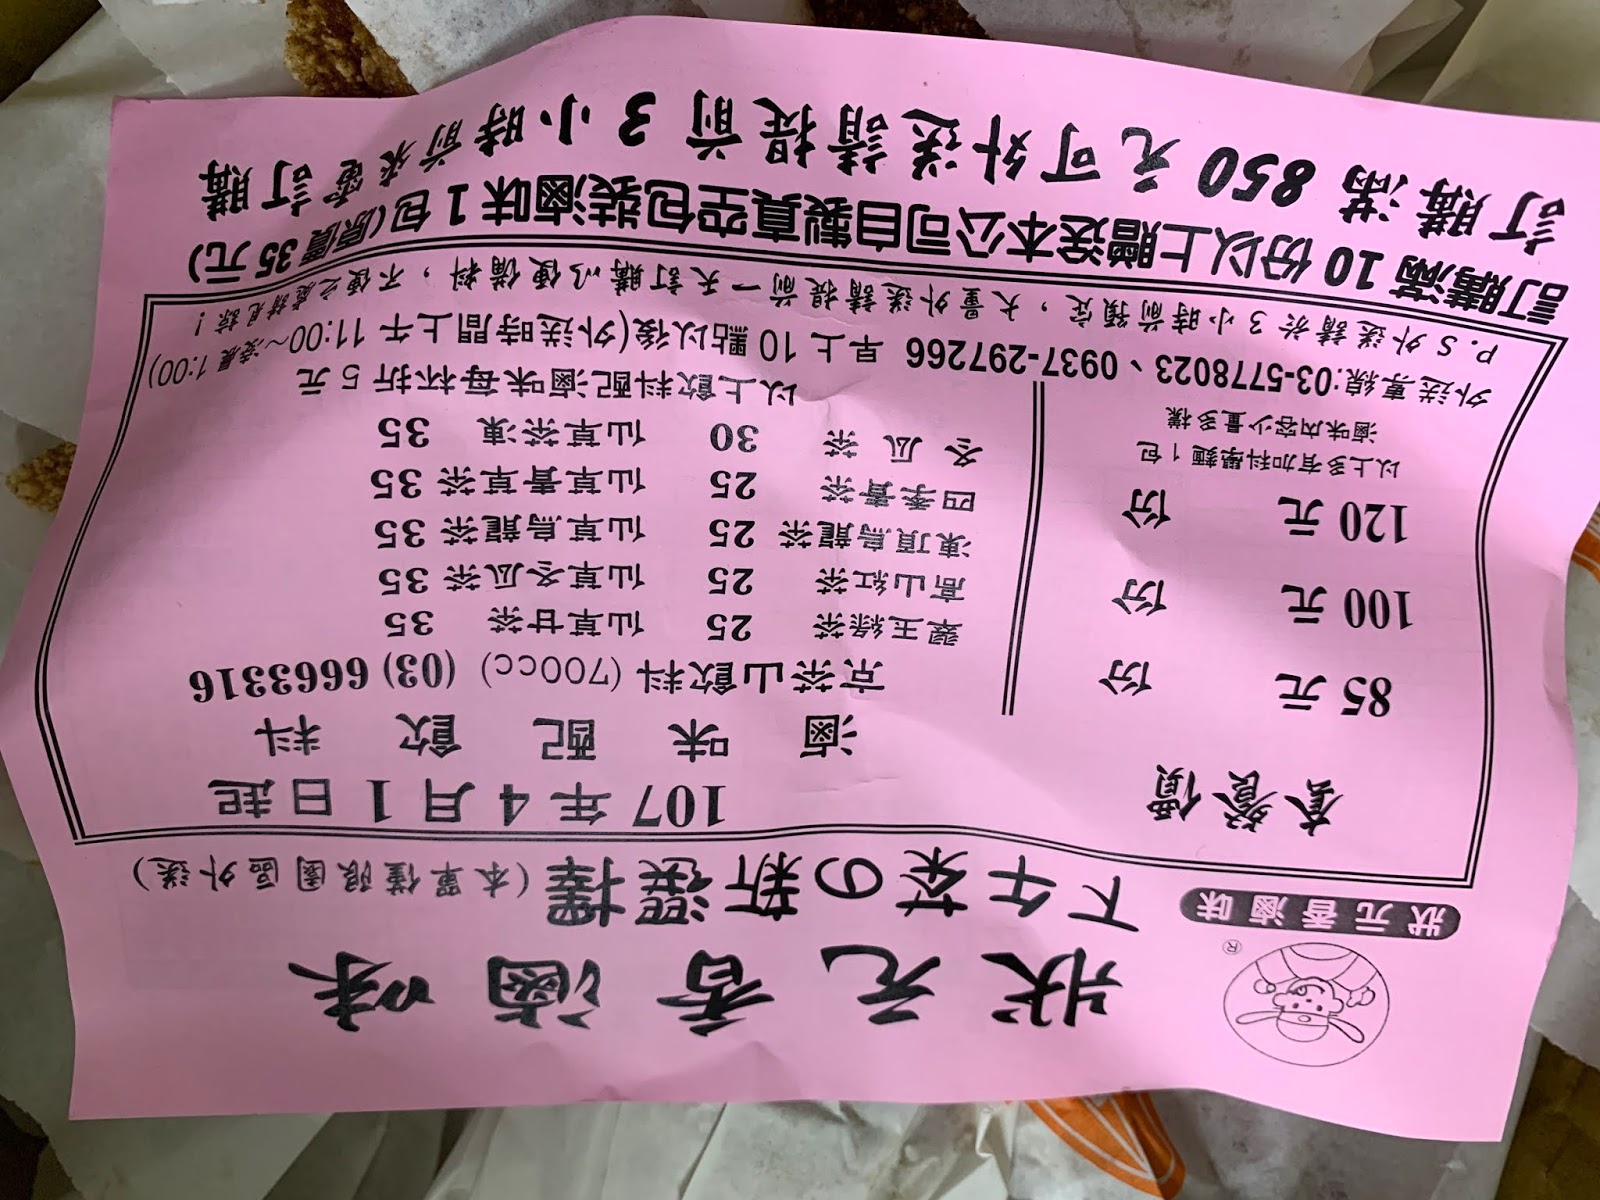 狀元香滷味
®
狀元香滷味
下午茶の新選擇(本單僅限園區外送)
套餐價
85元 份
100元 份
120元 份
以上多有加科學麵1包
滷味內容少量多樣
107年4月1日起
滷味配飲料
京茶山飲料(700cc) (03) 6663316
翠玉綠茶 25 仙草甘茶 35
高山紅茶 25 仙草冬瓜茶 35
凍頂烏龍茶 25 仙草烏龍茶 35
四季青茶 25 仙草青草茶 35
冬瓜茶 30 仙草茶凍 35
以上飲料配滷味每杯折5元
外送專線:03-5778023、0937-297266 早上10點以後(外送時間上午11:00~凌晨1:00)
P.S外送請於3小時前預定，大量外送請提前一天訂購以便備料，不便之處請見諒！
訂購滿10份以上贈送本公司自製真空包裝滷味1包(原價35元)
訂購滿850元可外送請提前3小時前來電訂購